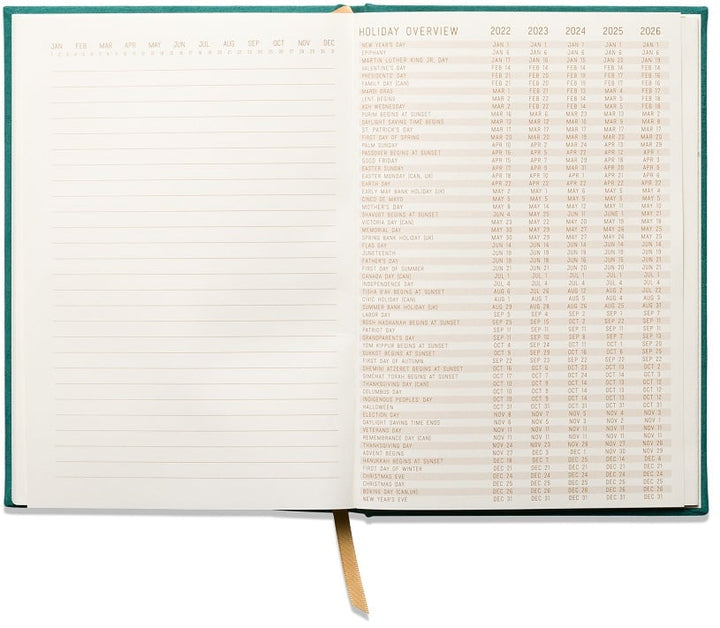 JAN FEB MAR APR MAY JUN JUL AUG SEP OCT NOV DEC
HOLIDAY OVERVIEW 2022 2023 2024 2025 2026
NEW YEAR'S DAY JAN 1 JAN 1 JAN 1 JAN 1 JAN 1
EPIPHANY JAN 6 JAN 6 JAN 6 JAN 6 JAN 6
MARTIN LUTHER KING JR. DAY JAN 17 JAN 16 JAN 15 JAN 20 JAN 19
VALENTINE'S DAY FEB 14 FEB 14 FEB 14 FEB 14 FEB 14
PRESIDENTS' DAY FEB 21 FEB 20 FEB 19 FEB 17 FEB 16
FAMILY DAY (CAN) FEB 21 FEB 20 FEB 19 FEB 17 FEB 16
MARDI GRAS MAR 1 FEB 21 FEB 13 MAR 4 FEB 17
LENT BEGINS MAR 2 FEB 22 FEB 14 MAR 5 FEB 18
ASH WEDNESDAY MAR 2 FEB 22 FEB 14 MAR 5 FEB 18
PURIM BEGINS AT SUNSET MAR 16 MAR 6 MAR 23 MAR 13 MAR 2
DAYLIGHT SAVING TIME BEGINS MAR 13 MAR 12 MAR 10 MAR 9 MAR 8
ST. PATRICK'S DAY MAR 17 MAR 17 MAR 17 MAR 17 MAR 17
FIRST DAY OF SPRING MAR 20 MAR 20 MAR 20 MAR 20
PALM SUNDAY APR 10 APR 2 MAR 24 APR 13 MAR 29
PASSOVER BEGINS AT SUNSET APR 15 APR 5 APR 22 APR 12 APR
GOOD FRIDAY APR 15 APR 7 MAR 29 APR 18 APR 3
EASTER SUNDAY APR 17 APR 9 MAR 31 APR 20 APR 5
EASTER MONDAY (CAN, UK) APR 18 APR 10 APR 1 APR 21 APR 6
EARTH DAY APR 22 APR 22 APR 22 APR 22 APR 22
EARLY MAY BANK HOLIDAY (UK) MAY 2 MAY 1 MAY 6 MAY 5 MAY 4
CINCO DE MAYO MAY 5 MAY 5 MAY 5 MAY 5 MAY 5
MOTHER'S DAY MAY 8 MAY 14 MAY 12 MAY 11 MAY 10
SHAVUOT BEGINS AT SUNSET JUN 4 MAY 25 JUN 11 JUNE 1 MAY 21
VICTORIA DAY (CAN) MAY 23 MAY 22 MAY 20 MAY 19 MAY 18
MEMORIAL DAY MAY 30 MAY 29 MAY 27 MAY 26 MAY 25
SPRING BANK HOLIDAY (UK) MAY 29 MAY 27 MAY 26 MAY 25
FLAG DAY JUN 14 JUN 14 JUN 14 JUN 14 JUN 14
JUNETEENTH JUN 19 JUN 19 JUN 19 JUN 19 JUN 19
FATHER'S DAY JUN 19 JUN 18 JUN 16 JUN 15 JUN 21
FIRST DAY OF SUMMER JUN 21 JUN 21 JUN 20 JUN 20 JUN 21
CANADA DAY (CAN) JUL 1 JUL 1 JUL 1 JUL 1 JUL 1
INDEPENDENCE DAY JUL 4 JUL 4 JUL 4 JUL 4 JUL 4
TISHA B'AV BEGINS AT SUNSET AUG 6 JUL 26 AUG 12 AUG 2 JUL 22
CIVIC HOLIDAY (CAN) AUG 1 AUG 7 AUG 5 AUG 4 AUG 3
SUMMER BANK HOLIDAY (UK) AUG 29 AUG 28 AUG 26 AUG 25 AUG 31
LABOR DAY SEP 5 SEP 4 SEP 2 SEP 1 SEP 7
ROSH HASHANAH BEGINS AT SUNSET SEP 25 SEP 15 OCT 2 SEP 22 SEP 11
PATRIOT DAY SEP 11 SEP 11 SEP 11 SEP 11 SEP 11
GRANDPARENTS DAY SEP 11 SEP 10 SEP 8 SEP 7 SEP 13
YOM KIPPUR BEGINS AT SUNSET OCT 4 SEP 24 OCT 11 OCT 1 SEP 20
SUKKOT BEGINS AT SUNSET OCT 9 SEP 29 OCT 16 OCT 6 SEP 25
FIRST DAY OF AUTUMN SEP 22 SEP 23 SEP 22 SEP 22 SEP 22
SHEMINI ATZERET BEGINS AT SUNSET OCT 16 OCT 6 OCT 23 OCT 13 OCT 2
SIMCHAT TORAH BEGINS AT SUNSET OCT 17 OCT 7 OCT 24 OCT 14 OCT 3
THANKSGIVING DAY (CAN) OCT 10 OCT 9 OCT 14 OCT 13 OCT 12
COLUMBUS DAY OCT 10 OCT 9 OCT 14 OCT 13 OCT 12
INDIGENOUS PEOPLES' DAY OCT 10 OCT 9 OCT 14 OCT 13 OCT 12
HALLOWEEN OCT 31 OCT 31 OCT 31 OCT 31 OCT 31
ELECTION DAY NOV 8 NOV 7 NOV 5 NOV 4 NOV 3
DAYLIGHT SAVING TIME ENDS NOV 6 NOV 5 NOV 3 NOV 2 NOV 1
VETERANS DAY NOV 11 NOV 11 NOV 11 NOV 11 NOV 11
REMEMBRANCE DAY (CAN) NOV 11 NOV 11 NOV 11 NOV 11 NOV 11
THANKSGIVING DAY NOV 24 NOV 23 NOV 28 NOV 27 NOV 26
ADVENT BEGINS NOV 27 DEC 3 DEC 1 NOV 30 NOV 29
HANUKKAH BEGINS AT SUNSET DEC 18 DEC 7 DEC 25 DEC 14 DEC 4
FIRST DAY OF WINTER DEC 21 DEC 21 DEC 21 DEC 21 DEC 21
CHRISTMAS EVE DEC 24 DEC 24 DEC 24 DEC 24 DEC 24
CHRISTMAS DAY DEC 25 DEC 25 DEC 25 DEC 25 DEC 25
BOXING DAY (CAN,UK) DEC 26 DEC 26 DEC 26 DEC 26 DEC 26
NEW YEAR'S EVE DEC 31 DEC 31 DEC 31 DEC 31 DEC 31